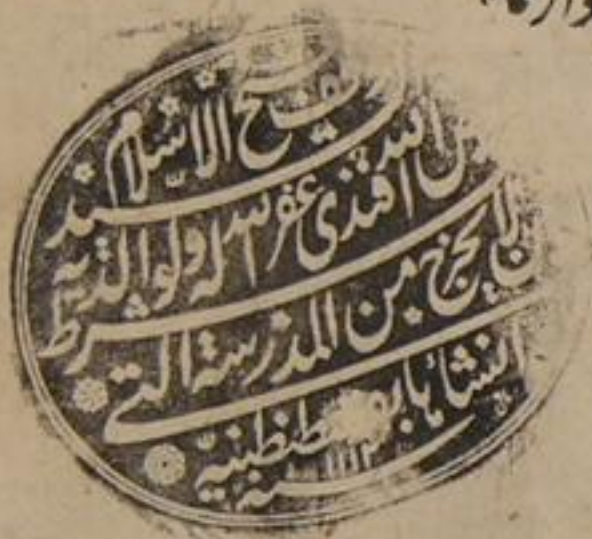 شيخ الاسلام
السيد فيض الله افندي غفر الله له ولوالديه
بشرط ان لا يخرج من المدرسة التي
انشائها بقسطنطينية
سنه ١١١٢